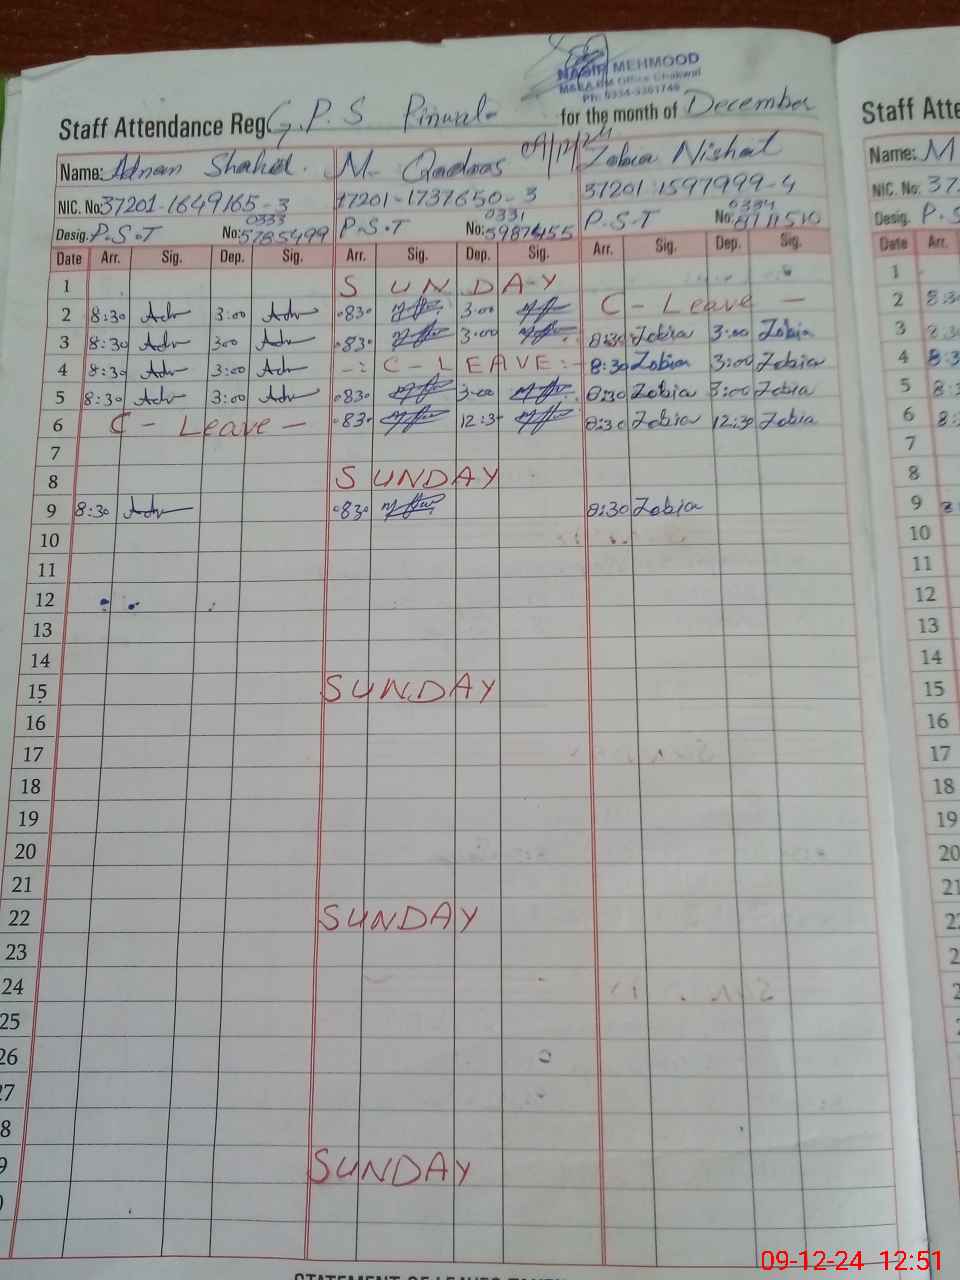 NASIR MEHMOOD
M&EA DM Office Chakwal
Staff Attendance Reg G.P.S for the month of December
09/12/24
Name: Adnan Shahid. M. Zobia Nishat
NIC. No: 37201-1649165-3 17201-1737650-3 37201-1597999-4
0333 0331 0334
Desig. P.S.T No: 5785499 P.S.T No: P.S.T No: 8711510
Date Arr. Sig. Dep. Sig. Arr. Sig. Dep. Sig. Arr. Sig. Dep. Sig.
1 SUNDAY
2 8:30 Adn 3:00 Adn 830 3:00 C - Leave -
3 8:30 Adn 300 Adn 830 3:00 8:30 Zobia 3:00 Zobia
4 8:30 Adn 3:00 Adn -: C - LEAVE :- 8:30 Zobia 3:00 Zobia
5 8:30 Adn 3:00 Adn 830 3:00 8:30 Zobia 3:00 Zobia
6 C - Leave - 830 12:3 8:30 Zobia 12:30 Zobia
7
8 SUNDAY
9 8:30 Adn 830 8:30 Zobia
10
11
12
13
14
15 SUNDAY
16
17
18
19
20
21
22 SUNDAY
23
24
25
26
27
8
9 SUNDAY
Staff Atte
Name: M
NIC. No: 37
Desig. P.S
Date Arr.
1
2 8:3
3 8:3
4 8:3
5 8:
6 8:
7
8
9
10
11
12
13
14
15
16
17
18
19
20
21
2
2
2
09-12-24 12:51